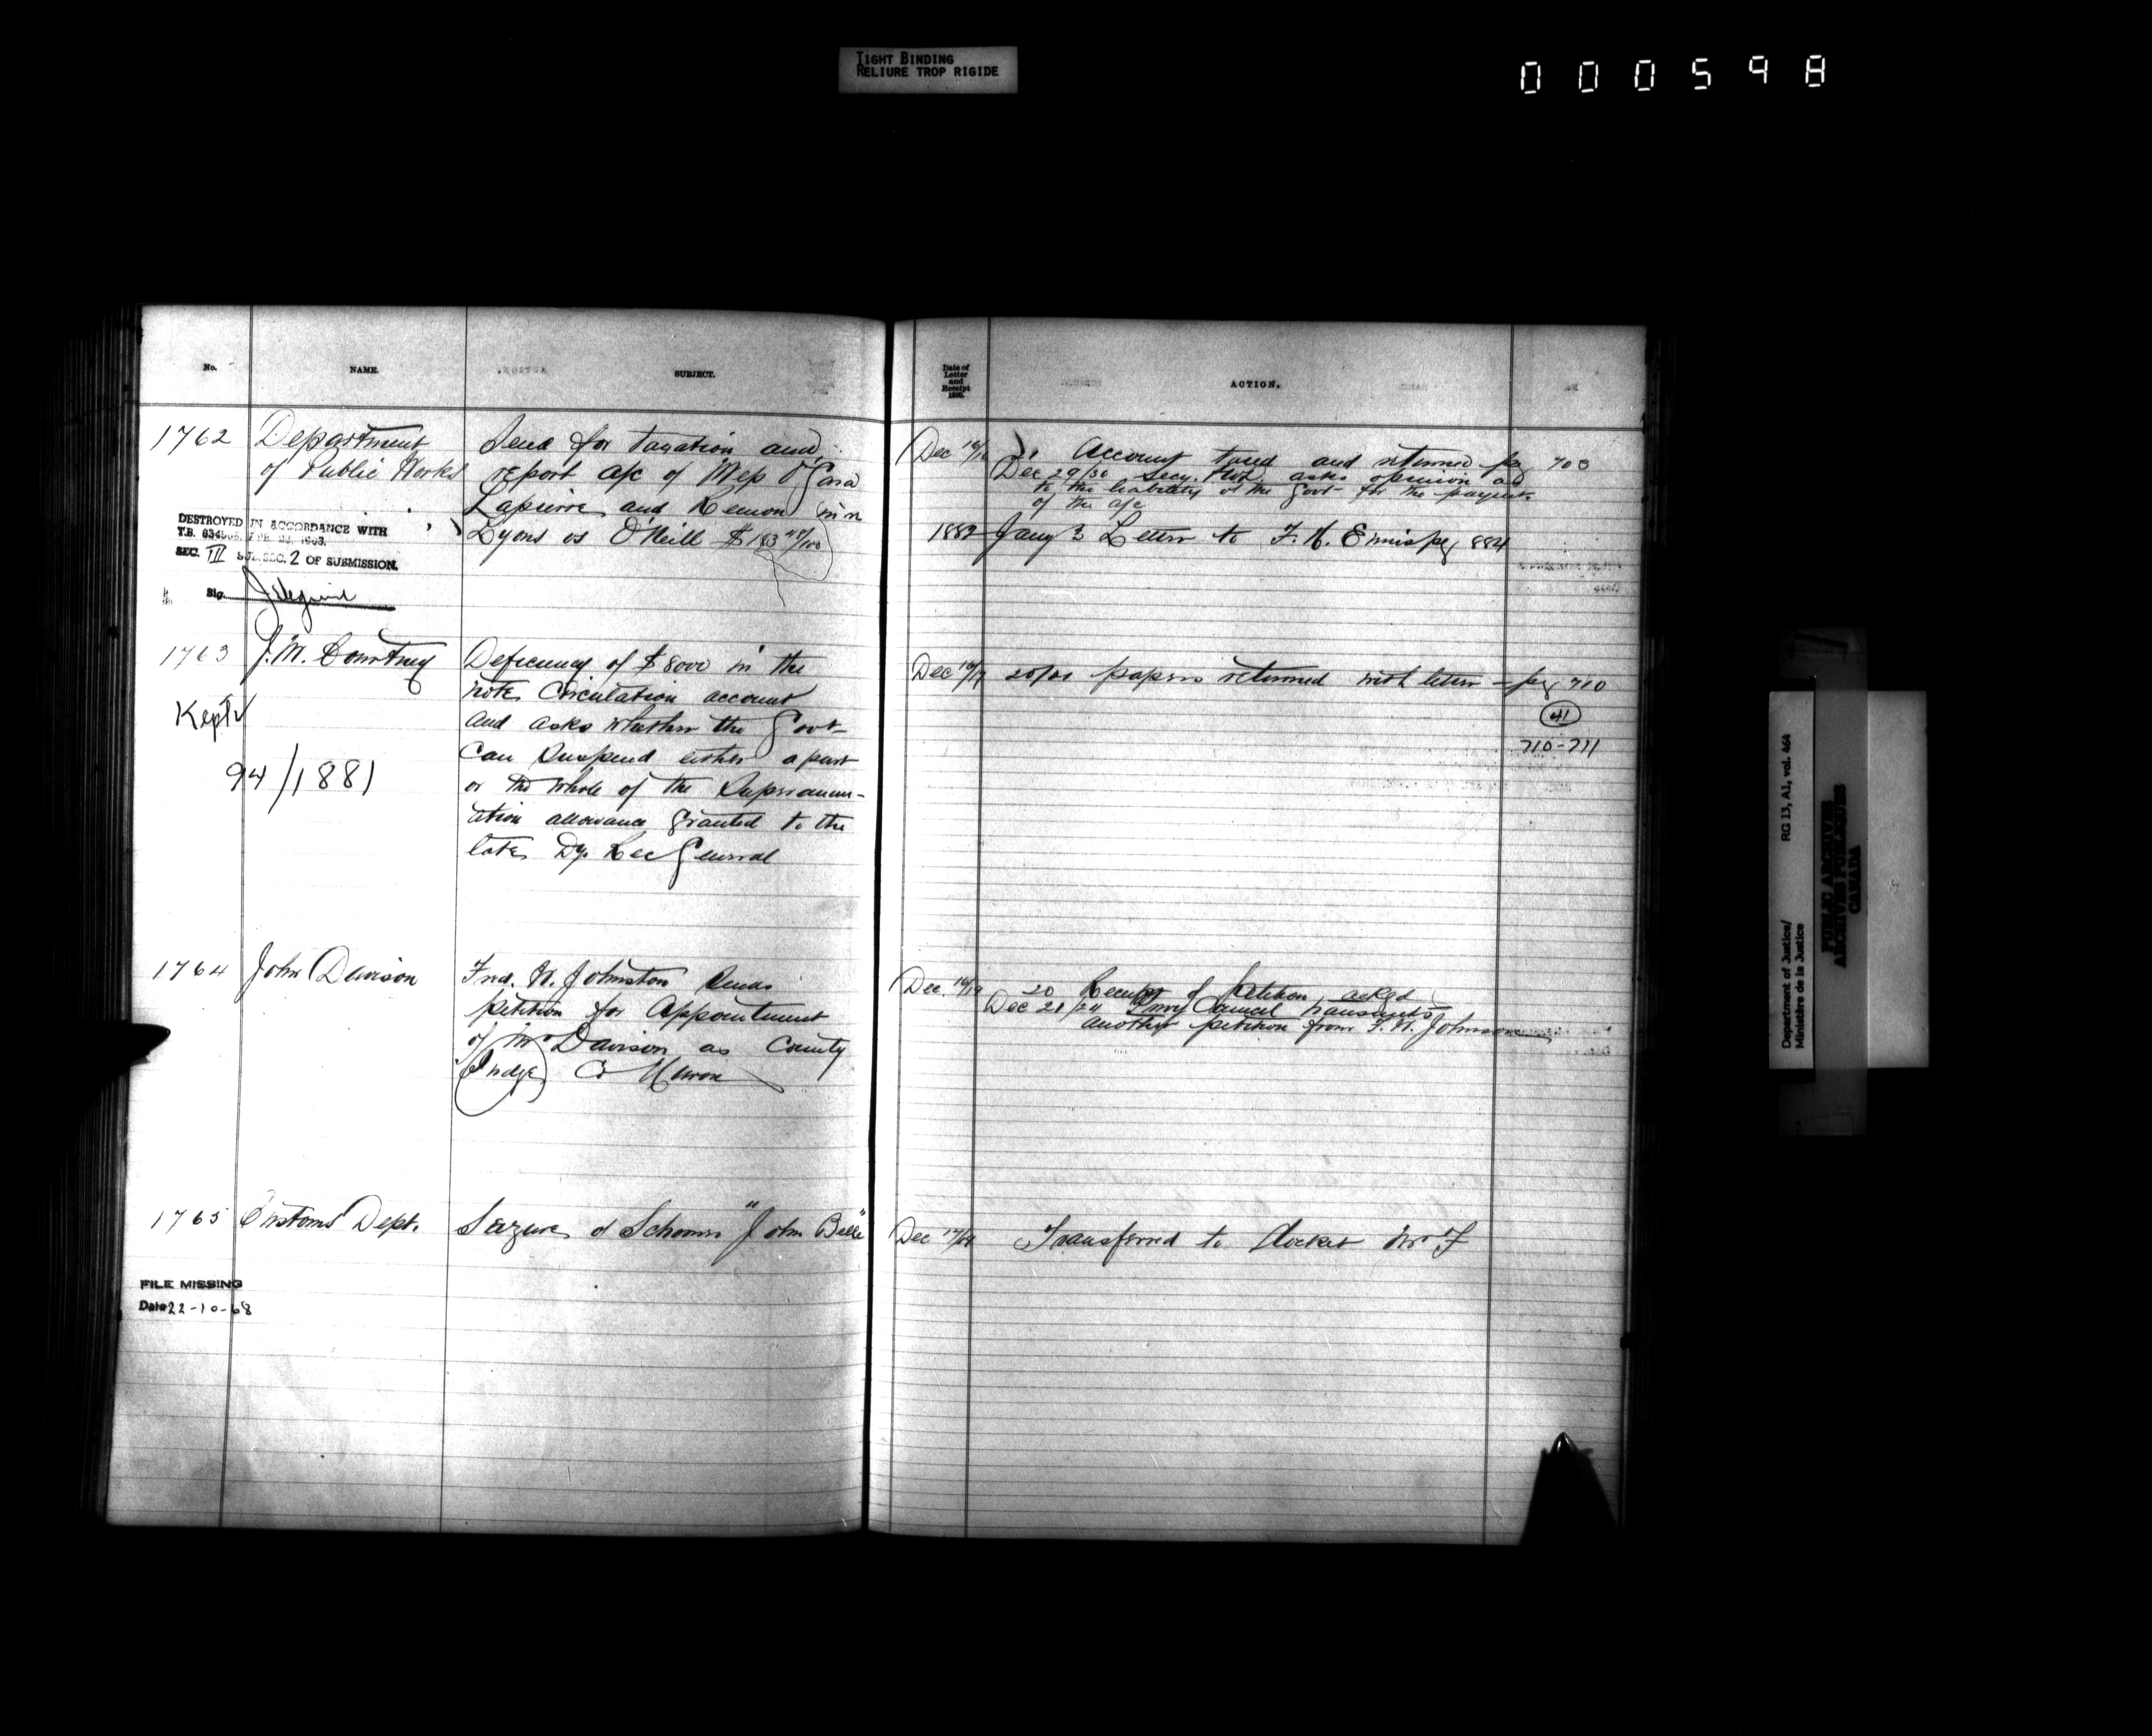 TIGHT BINDING
RELIURE TROP RIGIDE
000598
No.
NAME.
SUBJECT.
Date of Letter and Receipt 1880.
ACTION.
1762
Department
of Public Works
Send for taxation and
report a/c of Mess O'Gara
Lapierre and Remon in re
Lyons vs O'Neill $183 47/100
DESTROYED IN ACCORDANCE WITH
T.B.
SEC. III SUB. SEC. 2 OF SUBMISSION.
Sig.
Dec 16/
Account taxed and returned pg 703
Dec 29/30 Secy. P.W.D. asks opinion as
to the liability of the Govt for the payment
of the a/c
1882 Jany 3 Letter to F. H. Ennis pg 884
1763
J. M. Courtney
Kept
94/1881
Deficiency of $8000 in the
note Circulation account
and asks whether the Govt
can suspend either a part
or the whole of the Superannu-
ation allowance granted to the
late Dy. Rec General
Dec 16/17
papers returned with letter - pg 710
41
710-711
1764
John Davison
Fred. W. Johnston sends
petition for Appointment
of Mr Davison as County
Judge Co Huron
Dec. 16/19
20 Receipt of Petition acked
Dec 21/24 Privy Council transmits
another petition from F. W. Johnson
1765
Customs Dept.
Seizure of Schooner "John Bell"
Dec 17/
Transferred to Docket No F
FILE MISSING
Date 22-10-68
Department of Justice/
Ministère de la Justice
RG 13, A1, vol. 464
PUBLIC ARCHIVES
ARCHIVES PUBLIQUES
CANADA